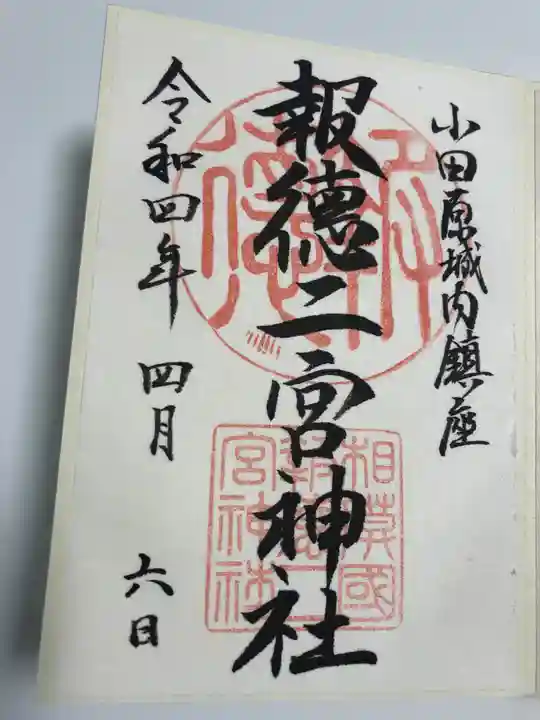 小田原城内鎮座
報徳二宮神社
令和四年 四月 六日
報徳
相模國
報徳二
宮神社